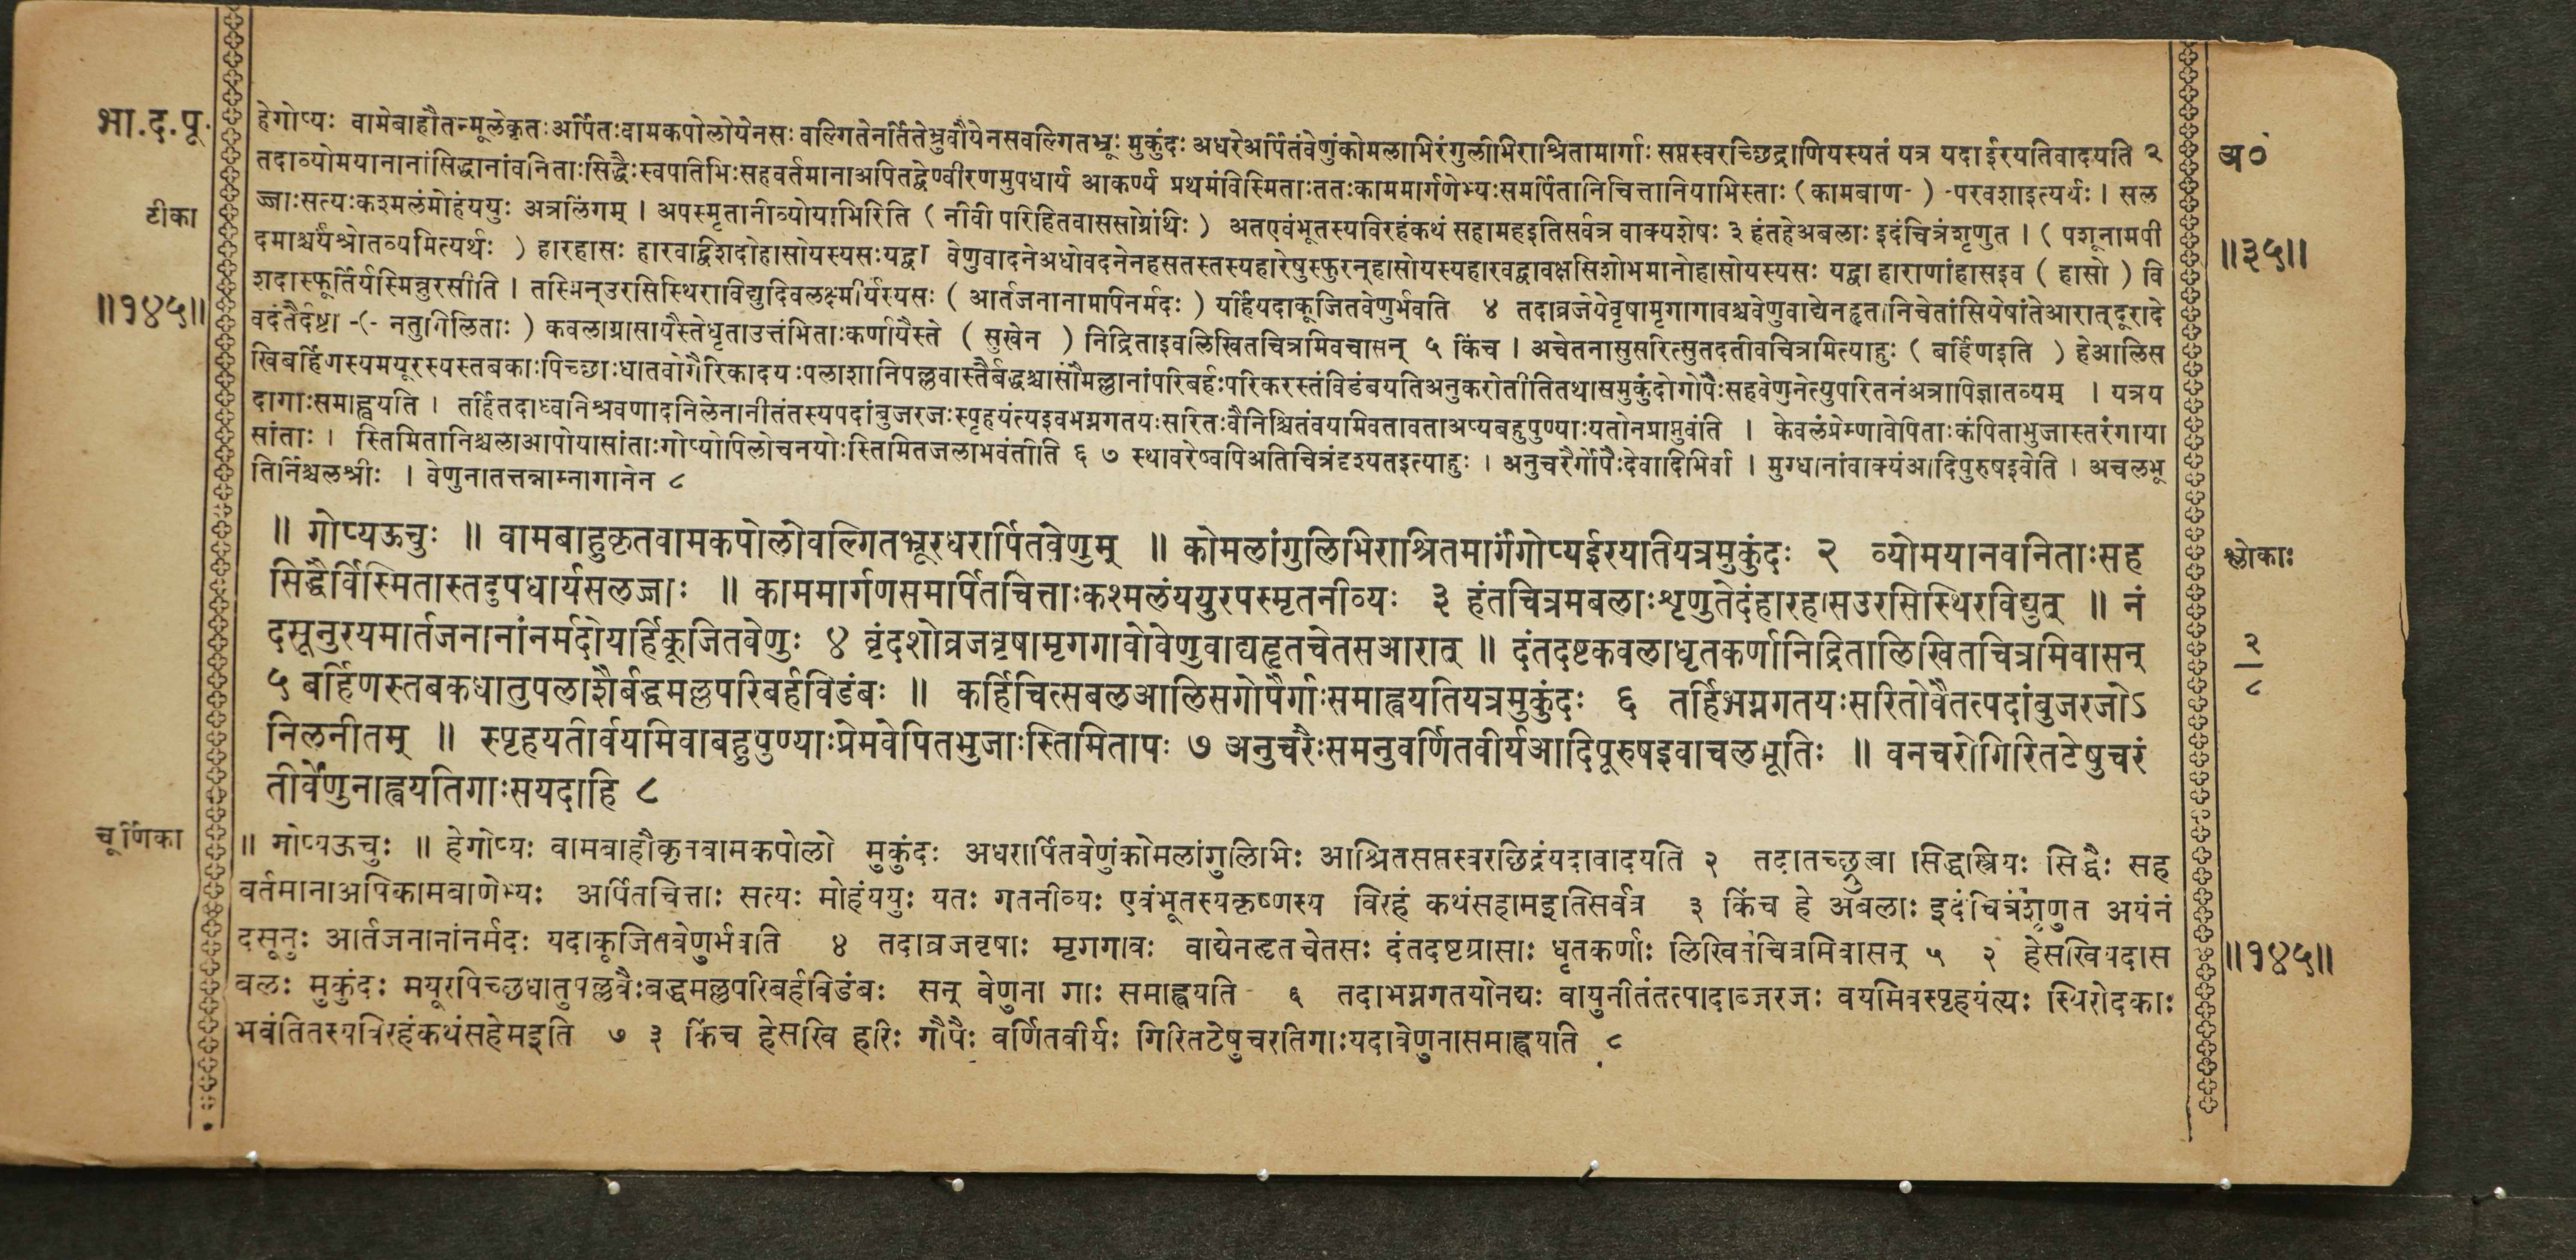 भा.द.पू.
टीका
॥१४५॥
हेगोप्यः वामेबाहौतन्मूलेकृतःअर्पितःवामकपोलोयेनसः वल्गितेनर्तितेभ्रुवौयेनसवल्गितभ्रूः मुकुंदः अधरेअर्पितंवेणुंकोमलाभिरंगुलीभिराश्रितामार्गाः सप्तस्वरच्छिद्राणियस्यतं यत्र यदाईरयतिवादयति २
तदाव्योमयानानांसिद्धानांवनिताःसिद्धैःस्वपतिभिःसहवर्तमानाअपितद्वेण्वीरणमुपधार्य आकर्ण्य प्रथमंविस्मिताःततःकाममार्गणेभ्यःसमर्पितानिचित्तानियाभिस्ताः (कामबाण-) -परवशाइत्यर्थः । सल
ज्जाःसत्यःकश्मलंमोहंययुः अत्रलिंगम् । अपस्मृतानीव्योयाभिरिति ( नीवी परिहितवाससोग्रंथिः ) अतएवंभूतस्यविरहंकथं सहामहइतिसर्वत्र वाक्यशेषः ३ हंतहेअबलाः इदंचित्रंशृणुत । ( पशूनामपी
दमाश्चर्यंश्रोतव्यमित्यर्थः ) हारहासः हारवद्विशदोहासोयस्यसःयद्वा वेणुवादनेअधोवदनेनहसतस्तस्यहारेषुस्फुरन्हासोयस्यहारवद्वावक्षसिशोभमानोहासोयस्यसः यद्वा हाराणांहासइव ( हासो ) वि
शदास्फूर्तिर्यस्मिन्नुरसीति । तस्मिन्उरसिस्थिराविद्युदिवलक्ष्मीर्यस्यसः ( आर्तजनानामपिनर्मदः ) यर्हियदाकूजितवेणुर्भवति ४ तदाव्रजेयेवृषामृगागावश्चवेणुवाद्येनहृतानिचेतांसियेषांतेआरात्दूरादे
वदंतैर्दष्टा -(- नतुगिलिताः ) कवलाग्रासायैस्तेधृताउत्तंभिताःकर्णायैस्ते ( सुखेन ) निद्रिताइवलिखितचित्रमिवचासन् ५ किंच । अचेतनासुसरित्सुतदतीवचित्रमित्याहुः ( बर्हिणइति ) हेआलिस
खिबर्हिणस्यमयूरस्यस्तबकाःपिच्छाःधातवोगैरिकादयःपलाशानिपल्लवास्तैर्बद्धश्चासौमल्लानांपरिबर्हःपरिकरस्तंविडंबयतिअनुकरोतीतितथासमुकुंदोगोपैःसहवेणुनेत्युपरितनंअत्रापिज्ञातव्यम् । यत्रय
दागाःसमाह्वयति । तर्हितदाध्वनिश्रवणादनिलेनानीतंतस्यपदांबुजरजःस्पृहयंत्यइवभग्नगतयःसरितःवैनिश्चितंवयमिवतावताअप्यबहुपुण्याःयतोनप्राप्नुवंति । केवलंप्रेम्णावेपिताःकंपिताभुजास्तरंगाया
सांताः । स्तिमितानिश्चलाआपोयासांताःगोप्योपिलोचनयोःस्तिमितजलाभवंतीति ६ ७ स्थावरेष्वपिअतिचित्रंदृश्यतइत्याहुः । अनुचरैर्गोपैःदेवादिभिर्वा । मुग्धानांवाक्यंआदिपुरुषइवेति । अचलभू
तिर्निश्चलश्रीः । वेणुनातत्तन्नाम्नागानेन ८
अ०
॥३५॥
॥ गोप्यऊचुः ॥ वामबाहुकृतवामकपोलोवल्गितभ्रूरधरार्पितवेणुम् ॥ कोमलांगुलिभिराश्रितमार्गंगोप्यईरयतियत्रमुकुंदः २ व्योमयानवनिताःसह
सिद्धैर्विस्मितास्तदुपधार्यसलज्जाः ॥ काममार्गणसमर्पितचित्ताःकश्मलंययुरपस्मृतनीव्यः ३ हंतचित्रमबलाःशृणुतेदंहारहासउरसिस्थिरविद्युत् ॥ नं
दसूनुरयमार्तजनानांनर्मदोयर्हिकूजितवेणुः ४ वृंदशोव्रजवृषामृगगावोवेणुवाद्यहृतचेतसआरात् ॥ दंतदष्टकवलाधृतकर्णानिद्रितालिखितचित्रमिवासन्
५ बर्हिणस्तबकधातुपलाशैर्बद्धमल्लपरिबर्हविडंबः ॥ कर्हिचित्सबलआलिसगोपैर्गाःसमाह्वयतियत्रमुकुंदः ६ तर्हिभग्नगतयःसरितोवैतत्पदांबुजरजोऽ
निलनीतम् ॥ स्पृहयतीर्वयमिवाबहुपुण्याःप्रेमवेपितभुजाःस्तिमितापः ७ अनुचरैःसमनुवर्णितवीर्यआदिपूरुषइवाचलभूतिः ॥ वनचरोगिरितटेषुचरं
तीर्वेणुनाह्वयतिगाःसयदाहि ८
श्लोकाः
२
८
चूर्णिका
॥ गोप्यऊचुः ॥ हेगोप्यः वामबाहौकृतवामकपोलो मुकुंदः अधरार्पितवेणुंकोमलांगुलिभिः आश्रितसप्तस्वरछिद्रंयदावादयति २ तदातच्छ्रुत्वा सिद्धस्त्रियः सिद्धैः सह
वर्तमानाअपिकामबाणेभ्यः अर्पितचित्ताः सत्यः मोहंययुः यतः गतनीव्यः एवंभूतस्यकृष्णस्य विरहं कथंसहामइतिसर्वत्र ३ किंच हे अबलाः इदंचित्रंशृणुत अयंनं
दसूनुः आर्तजनानांनर्मदः यदाकूजितवेणुर्भवति ४ तदाव्रजवृषाः मृगगावः वाद्येनहृतचेतसः दंतदष्टग्रासाः धृतकर्णाः लिखितचित्रमिवासन् ५ २ हेसखियदास
बलः मुकुंदः मयूरपिच्छधातुपल्लवैःबद्धमल्लपरिबर्हविडंबः सन् वेणुना गाः समाह्वयति ६ तदाभग्नगतयोनद्यः वायुनीतंतत्पादाब्जरजः वयमिवस्पृहयंत्यः स्थिरोदकाः
भवंतितस्यविरहंकथंसहेमइति ७ ३ किंच हेसखि हरिः गोपैः वर्णितवीर्यः गिरितटेषुचरतिगाःयदावेणुनासमाह्वयति ८
॥१४५॥